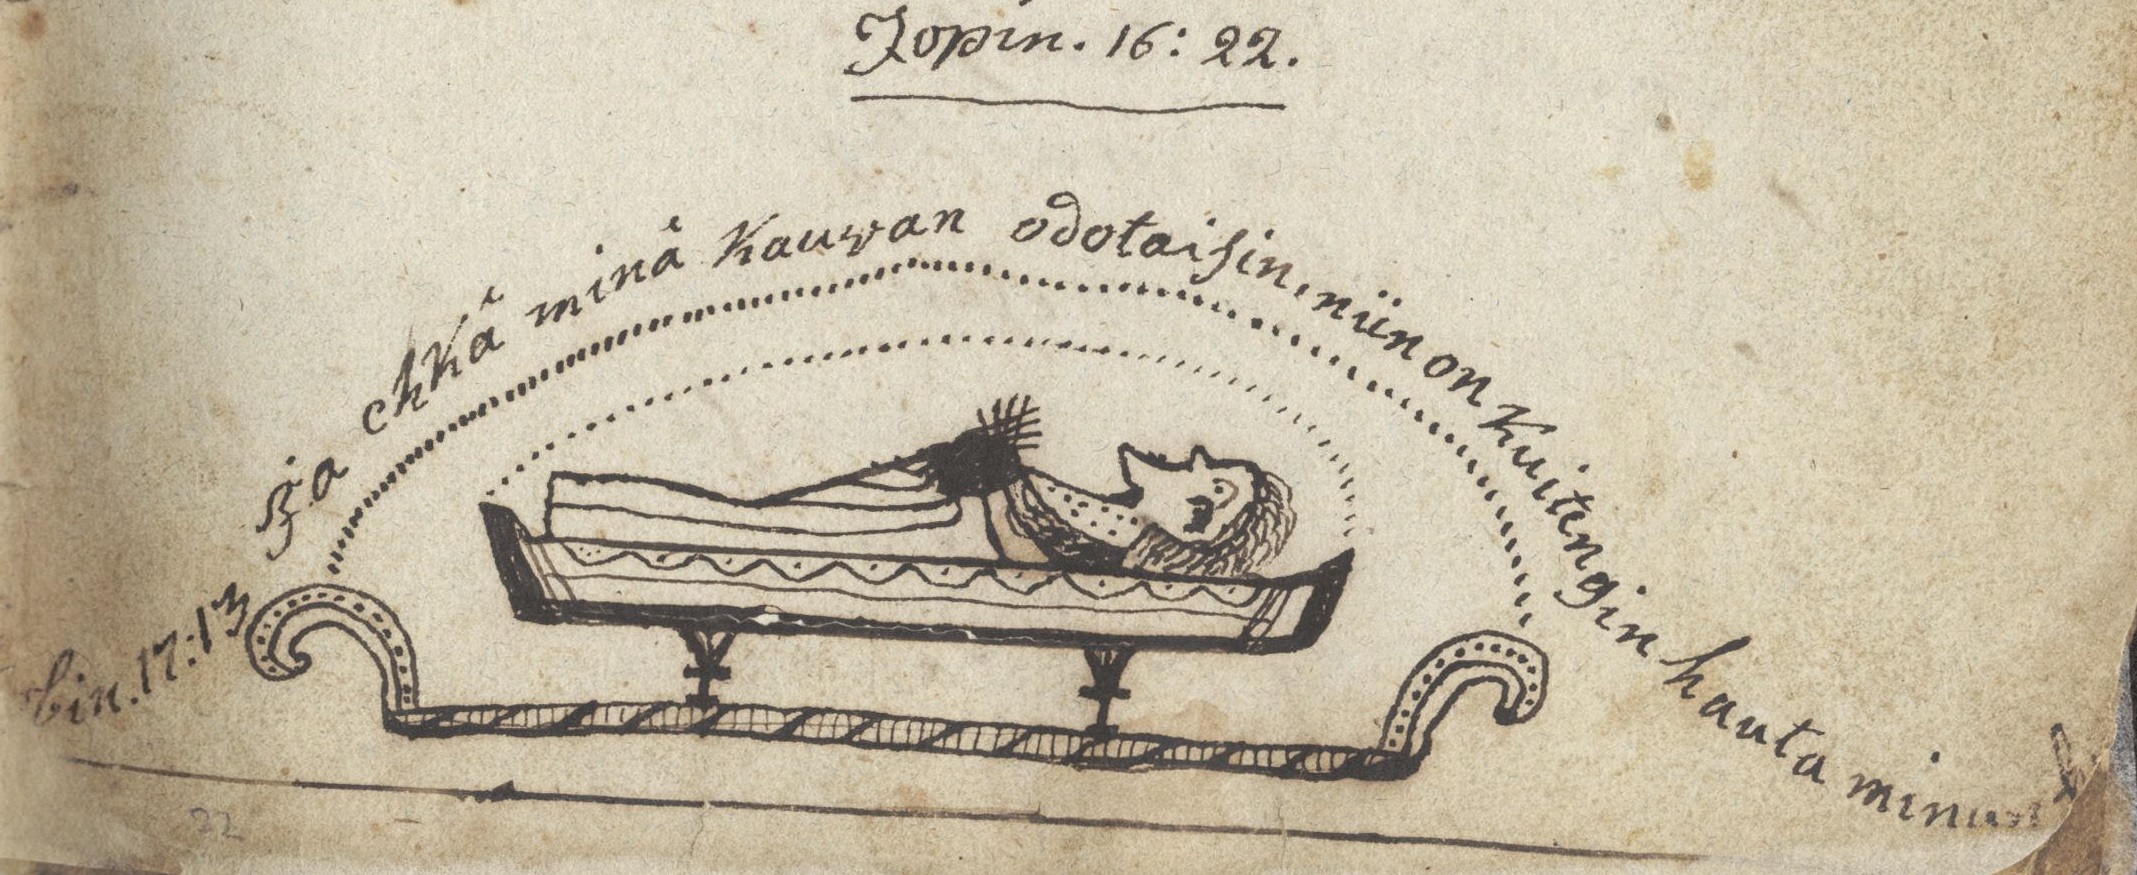 Jopin. 16: 22.
bin. 17:13 Ja ehkå minå kauwan odotaisin, niin on kuitengin hauta minun
22